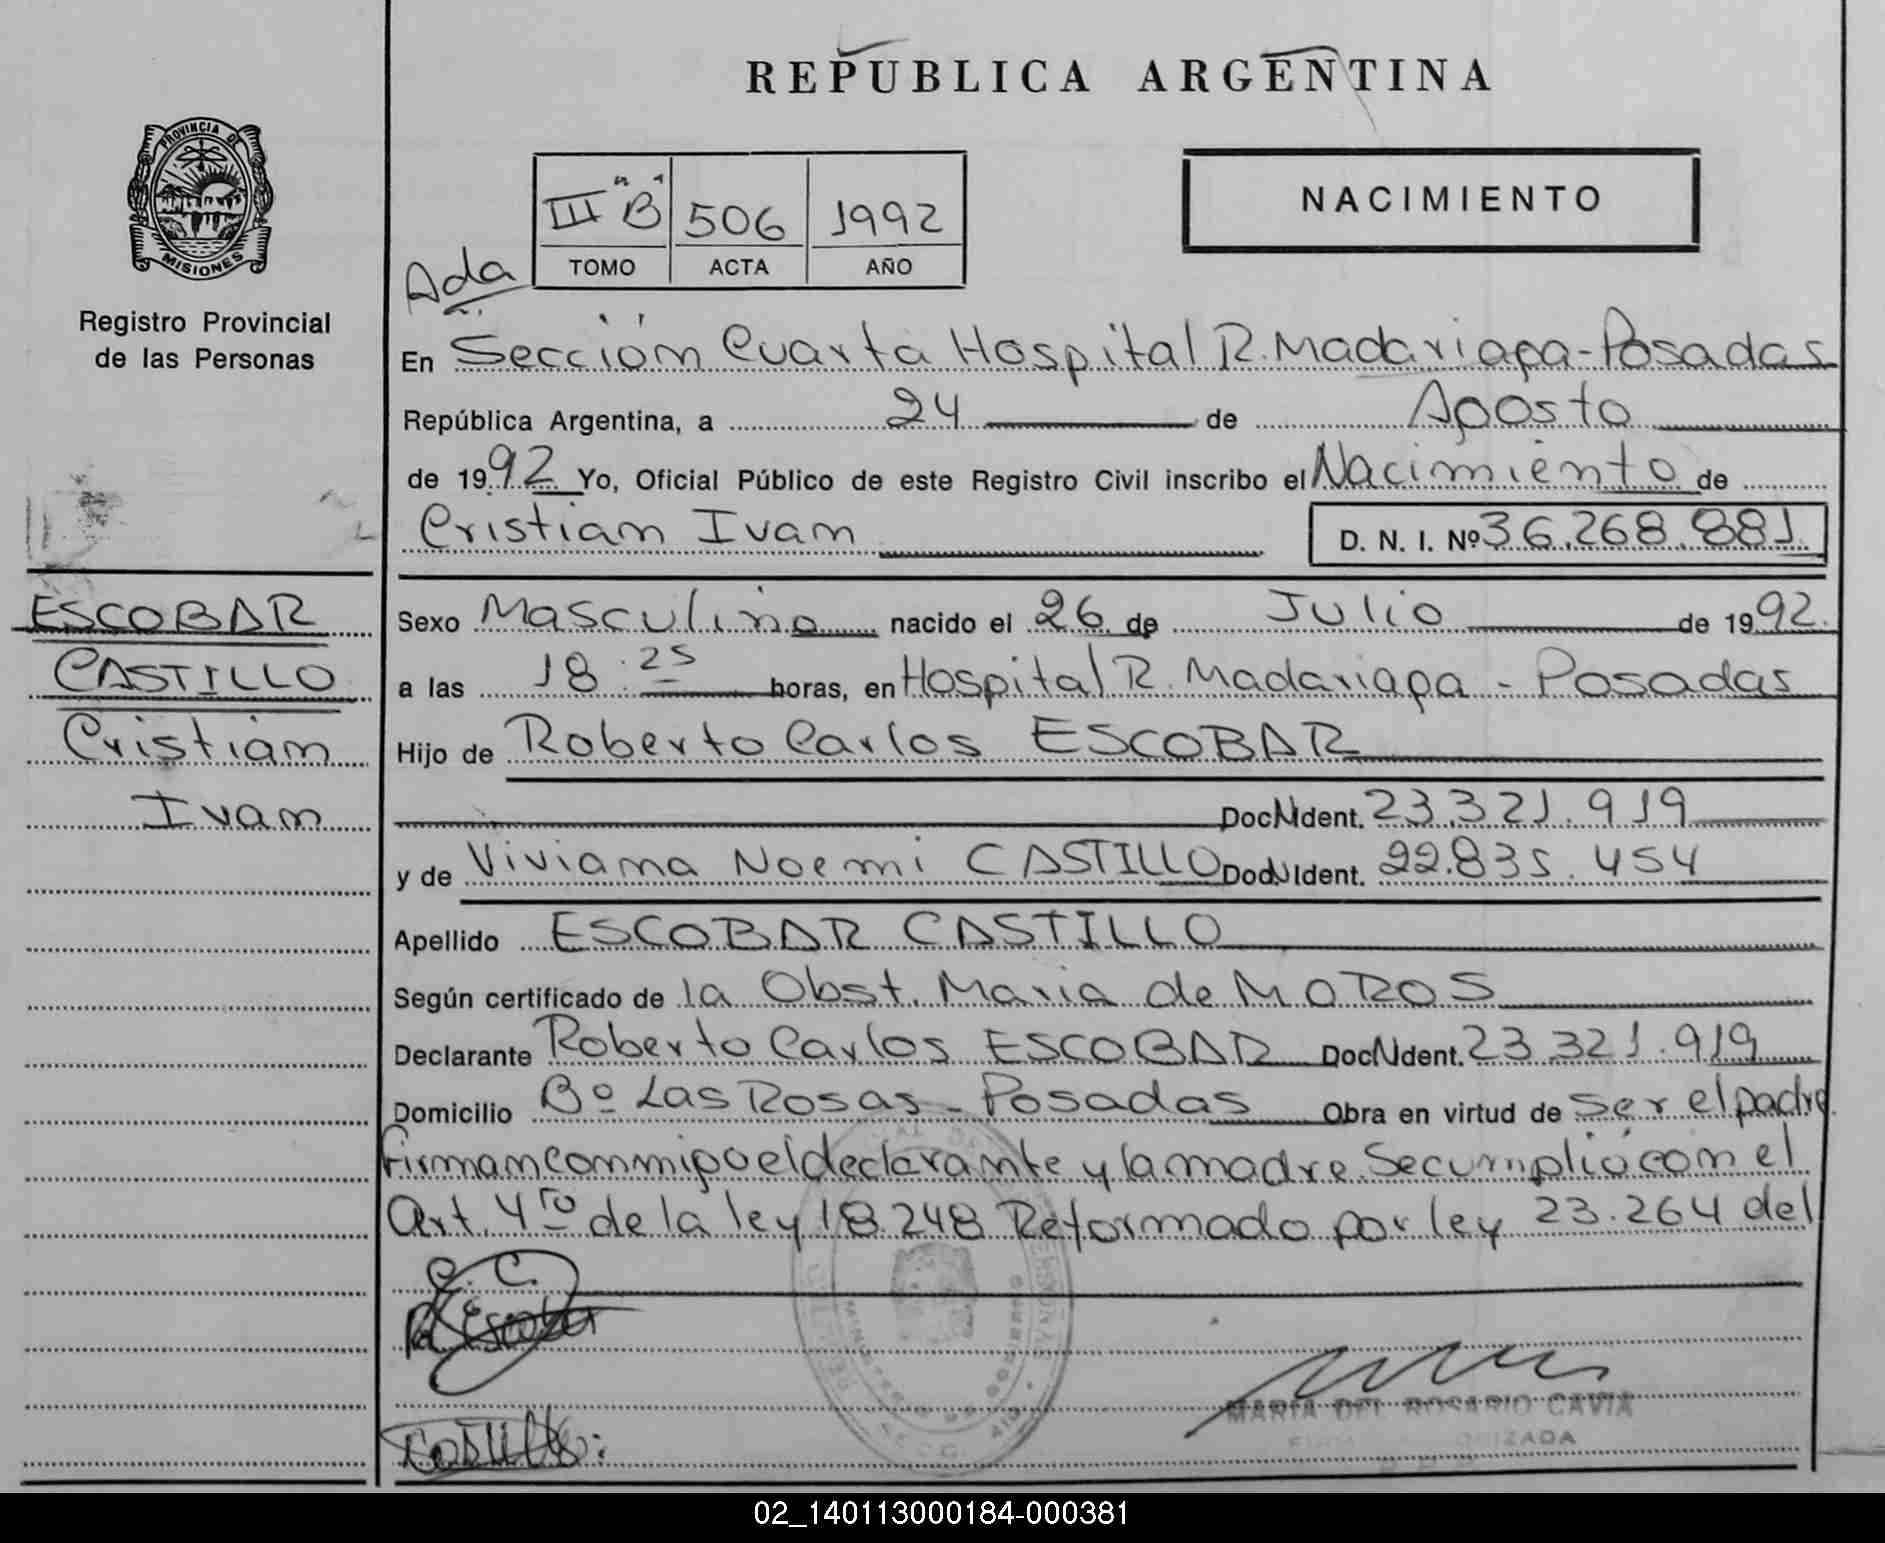 REPUBLICA ARGENTINA
PROVINCIA DE
MISIONES
Registro Provincial
de las Personas
III "B" 506 1992
TOMO ACTA AÑO
NACIMIENTO
Ada
En Sección Cuarta Hospital R. Madariaga - Posadas
República Argentina, a 24 de Agosto
de 1992 Yo, Oficial Público de este Registro Civil inscribo el Nacimiento de
Cristian Ivan D. N. I. Nº 36.268.881
ESCOBAR
CASTILLO
Cristian
Ivan
Sexo Masculino nacido el 26 de Julio de 1992
a las 18.25 horas, en Hospital R. Madariaga - Posadas
Hijo de Roberto Carlos ESCOBAR
Doc N Ident. 23.321.919
y de Viviana Noemi CASTILLO Doc N Ident. 22.835.454
Apellido ESCOBAR CASTILLO
Según certificado de la Obst. Maria de MOROS
Declarante Roberto Carlos ESCOBAR Doc N Ident. 23.321.919
Domicilio Bº Las Rosas - Posadas Obra en virtud de Ser el padre
firman conmigo el declarante y la madre. Se cumplió con el
Art. 4to de la ley 18.248 Reformado por ley 23.264 del
C. C.
R Escobar
Castillo
MINISTERIO DE GOBIERNO
MARIA DEL ROSARIO CAVIA
02_140113000184-000381